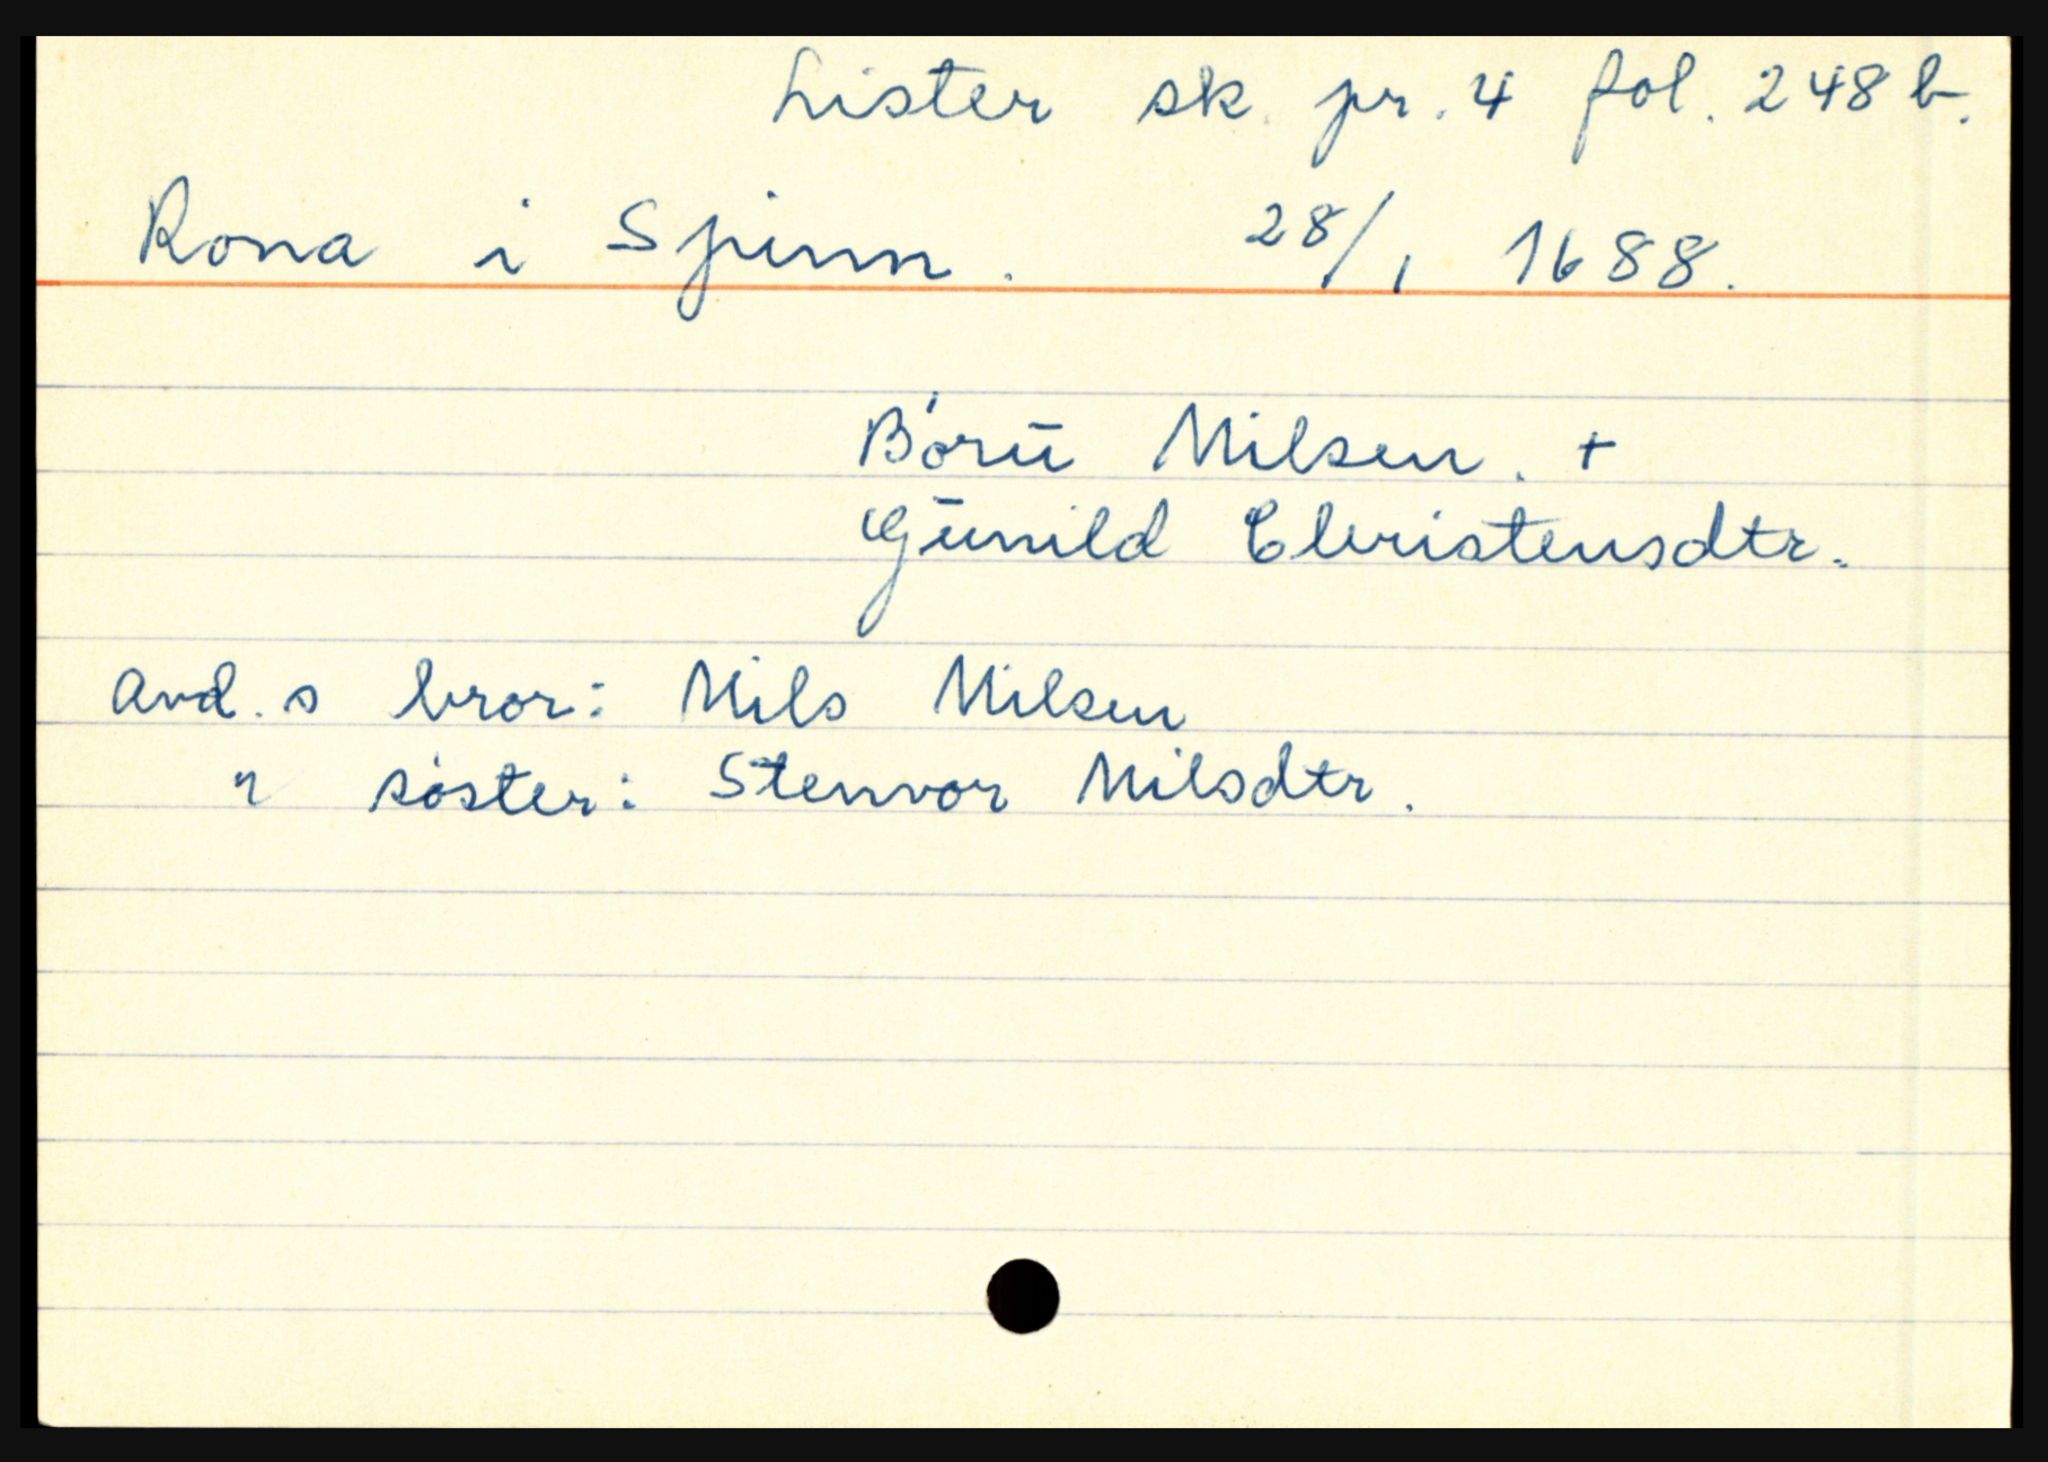 Lister sk. pr. 4 fol. 248 b.
Rona i Spinn. 28/1 1688.
Børū Nilsen. +
Gūnild Christensdtr.
avd. s bror: Nils Nilsen
" søster: Stenvor Nilsdtr.